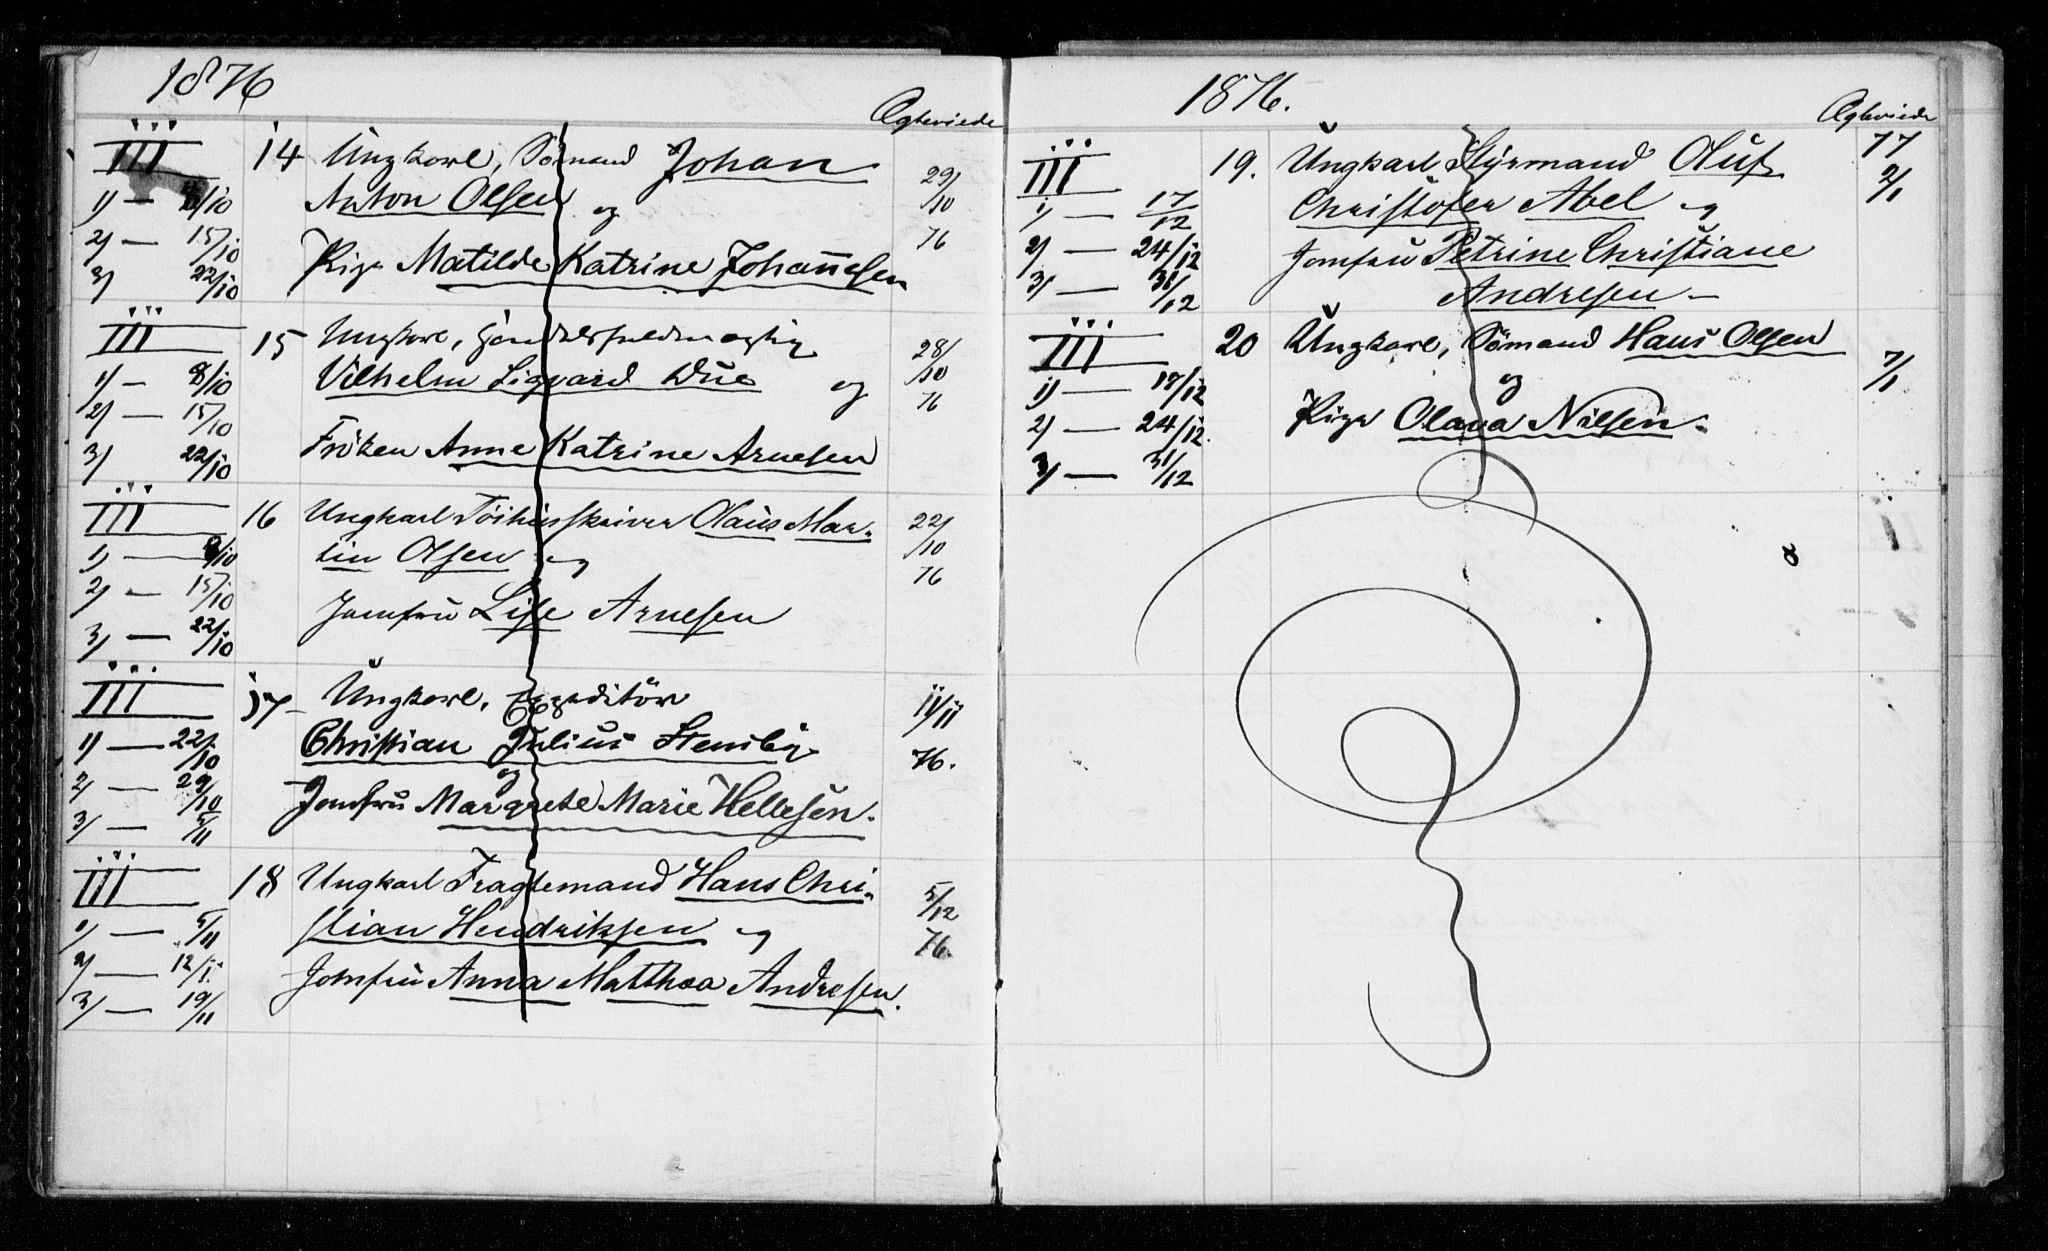 1876
Ægteviede
III 14 Ungkarl, Sömand Johan
1) — 8/10 Anton Olsen og 29/10
2) — 15/10 76
3) 22/10 Pige Matilde Katrine Johannesen
III 15 Ungkarl, Handelsfuldmægtig
1) — 8/10 Vilhelm Sigvard Due og 28/10
2) — 15/10 76
3) 22/10 Fröken Anne Katrine Arnesen
III 16 Ungkarl Töihusskriver Olaus Mar-
1) — 8/10 tin Olsen og 22/10
2) — 15/10 76
3) — 22/10 Jomfru Lise Arnesen
III 17 Ungkarl, Expeditör 11/11
1) — 22/10 Christian Julius Stensby 76.
2) — 29/10 og
3) — 5/11 Jomfru Margrete Marie Hellesen.
III 18 Ungkarl Fragtemand Hans Chri-
1) — 5/11 stian Hendriksen og 5/12
2) — 12/11 76
3) — 19/11 Jomfru Anna Matthea Andresen.
1876.
Ægteviede
III 19. Ungkarl Styrmand Oluf 77
1) — 17/12 Christofer Abel og 2/1
2) — 24/12 Jomfru Petrine Christiane
3) — 31/12 Andresen —
III 20 Ungkarl, Sömand Hans Olsen
1) — 17/12 og 7/1
2) — 24/12. Pige Olava Nilsen.
3) — 31/12